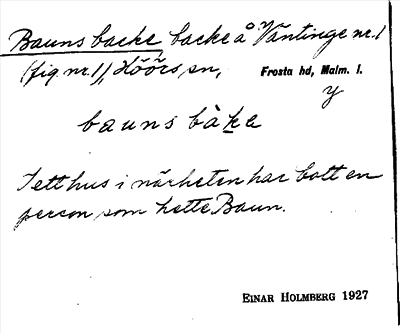 Bauns backe backe å Väntinge nr. 1
(fig. nr. 1), Höörs sn, Frosta hd, Malm. l.
y
bauns bàke
I ett hus i närheten har bott en
person som hette Baun.
EINAR HOLMBERG 1927